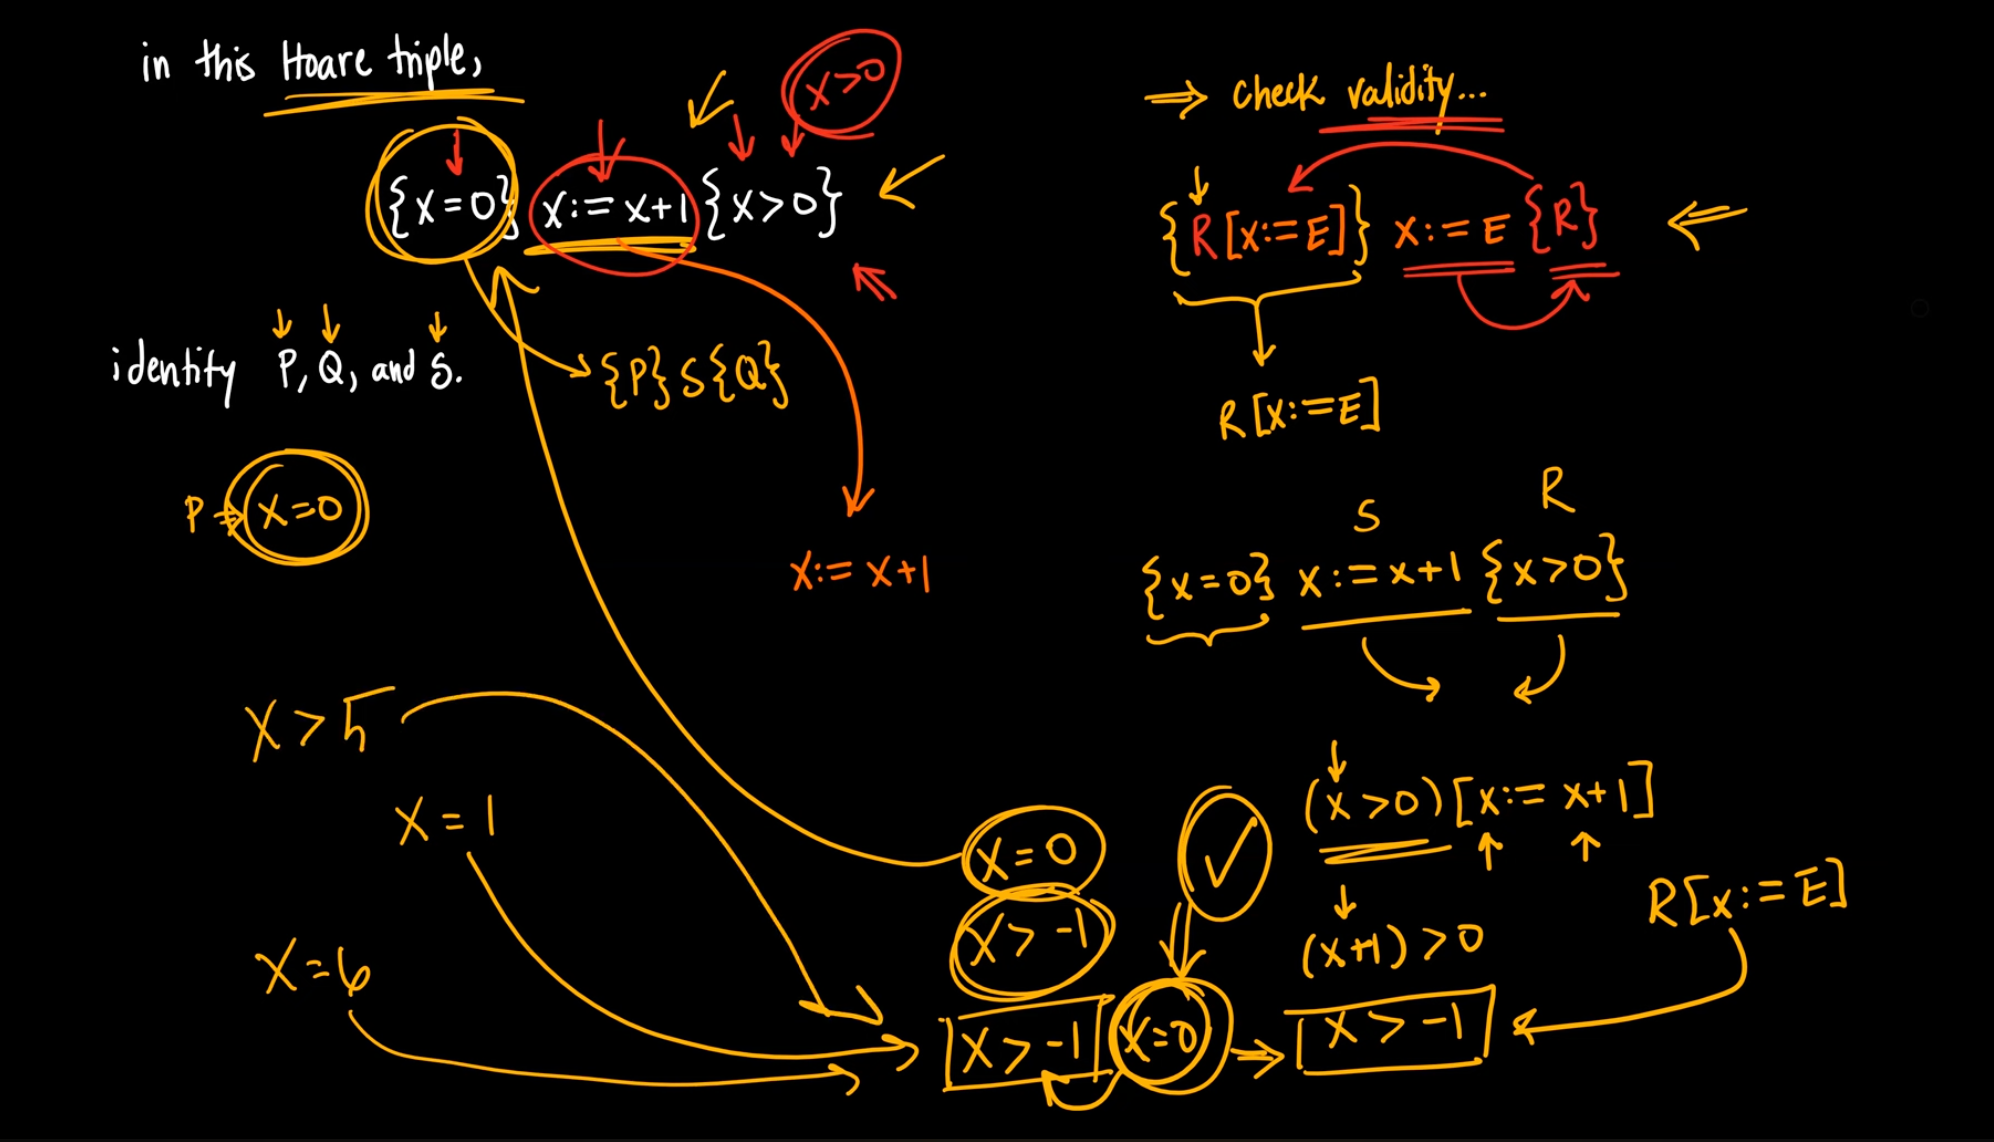 in this Hoare triple,
x>0
{x=0} x:=x+1 {x>0}
identify P, Q, and S.
{P} S {Q}
P → x=0
x:=x+1
x>5
x=1
x=6
x=0
x>-1
x>-1 x=0 ⇒ x>-1
⇒ check validity...
{R[x:=E]} x:=E {R}
R[x:=E]
S R
{x=0} x:=x+1 {x>0}
(x>0)[x:=x+1]
R[x:=E]
(x+1)>0